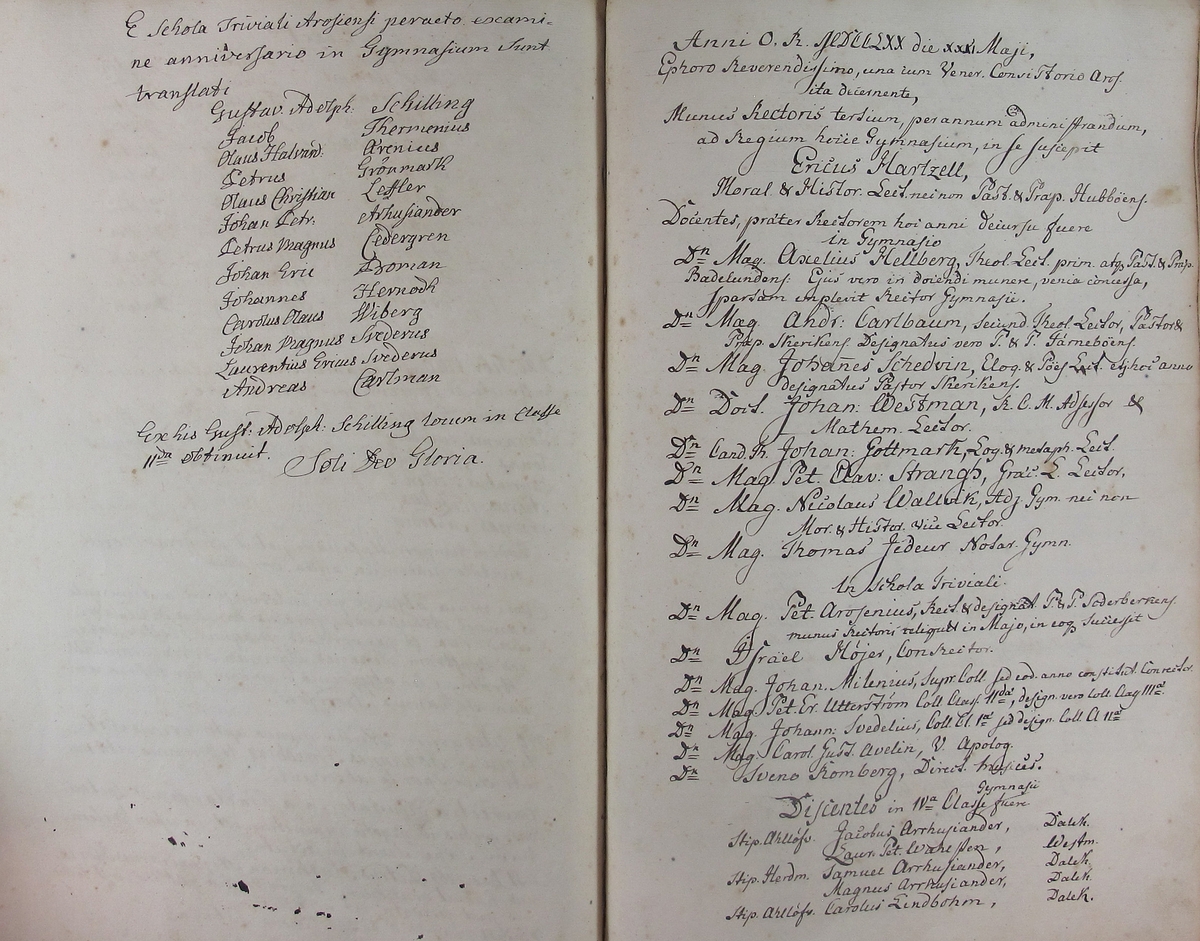 E Schola Triviali Arosiensi peracto exami-
ne anniversario in Gymnasium sunt
translati
Gustav. Adolph. Schilling
Jacob Thermenius
Olaus Halvard. Arenius
Petrus Grönmark
Olaus Christian Leffler
Johan Petr. Arhusiander
Petrus Magnus Cedergren
Johan Eric Broman
Johannes Hernodh
Carolus Olaus Wiberg
Johan Magnus Svederus
Laurentius Ericus Svederus
Andreas Carlman
Ex his Gust: Adolph: Schilling locum in Classe
IIda obtinuit.
Soli Deo Gloria.
Anni O. R. MDCCLXX die Maji,
Ephoro Reverendissimo, una cum Vener. Consistorio Aros.
ita decernente,
Munus Rectoris tertium, per annum administrandum,
ad Regium hocce Gymnasium, in se suscepit
Ericus Hartzell,
Moral & Histor. Lect. nec non Past. & Præp. Hubböens.
Docentes, præter Rectorem hoc anni decursu fuere
in Gymnasio
Dn Mag. Axelius Hellberg, Theol. Lect. prim. atq Past. & Præp.
Badelundens. Ejus vero in docendi munere, venia concessa,
sparsam implevit Rector Gymnasii.
Dn Mag. Andr: Carlbaum, secund Theol Lector, Pastor &
Præp. Skerikens. Designatus vero P. & P. Järneböens.
Dn Mag. Johañes Schedvin, Eloq. & Poës Lect. et hoc anno
designatus Pastor Skerikens.
Dn Doct. Johan: Westman, R. C. M. Adsessor &
Mathem. Lector.
Dn Cand. Th. Johan: Gottmark, Log. & metaph. Lect.
Dn Mag. Pet. Olav: Strangh, Græc. L. Lector,
Dn Mag. Nicolaus Wallrak, Adj Gym. nec non
Mor. & Histor. Vice Lector.
Dn Mag. Thomas Jedeur Notar. Gymn.
In Schola Triviali.
Dn Mag. Pet. Arosenius, Rect. & designat. P. & P. Söderberkens.
munus Rectoris reliquit in Majo, in eoq Successit
Dn Israel Höjer, ConRector.
Dn Mag. Johan. Milenius, Supr. Coll. sed eod. anno constitut. Conrector.
Dn Mag. Pet. Er. Utterström Coll Class. IIdæ, design. vero Coll Class IIIæ
Dn Mag. Johann: Svedelius, Coll. Cl Iæ sed design. Coll Cl IIæ
Dn Mag. Carol. Gust. Avelin, V. Apolog.
Dn Sveno Romberg, Direct. Musices.
Discentes in IVta Classe Gymnasii fuere
Stip. Ahllöfv. Jacobus Arrhusiander, Dalek.
Laur. Pet. Wahlsten, Westm.
Stip. Herdm. Samuel Arrhusiander, Dalek.
Magnus Arrhusiander, Dalek.
Stip. Ahllöfv. Carolus Lindbohm, Dalek.